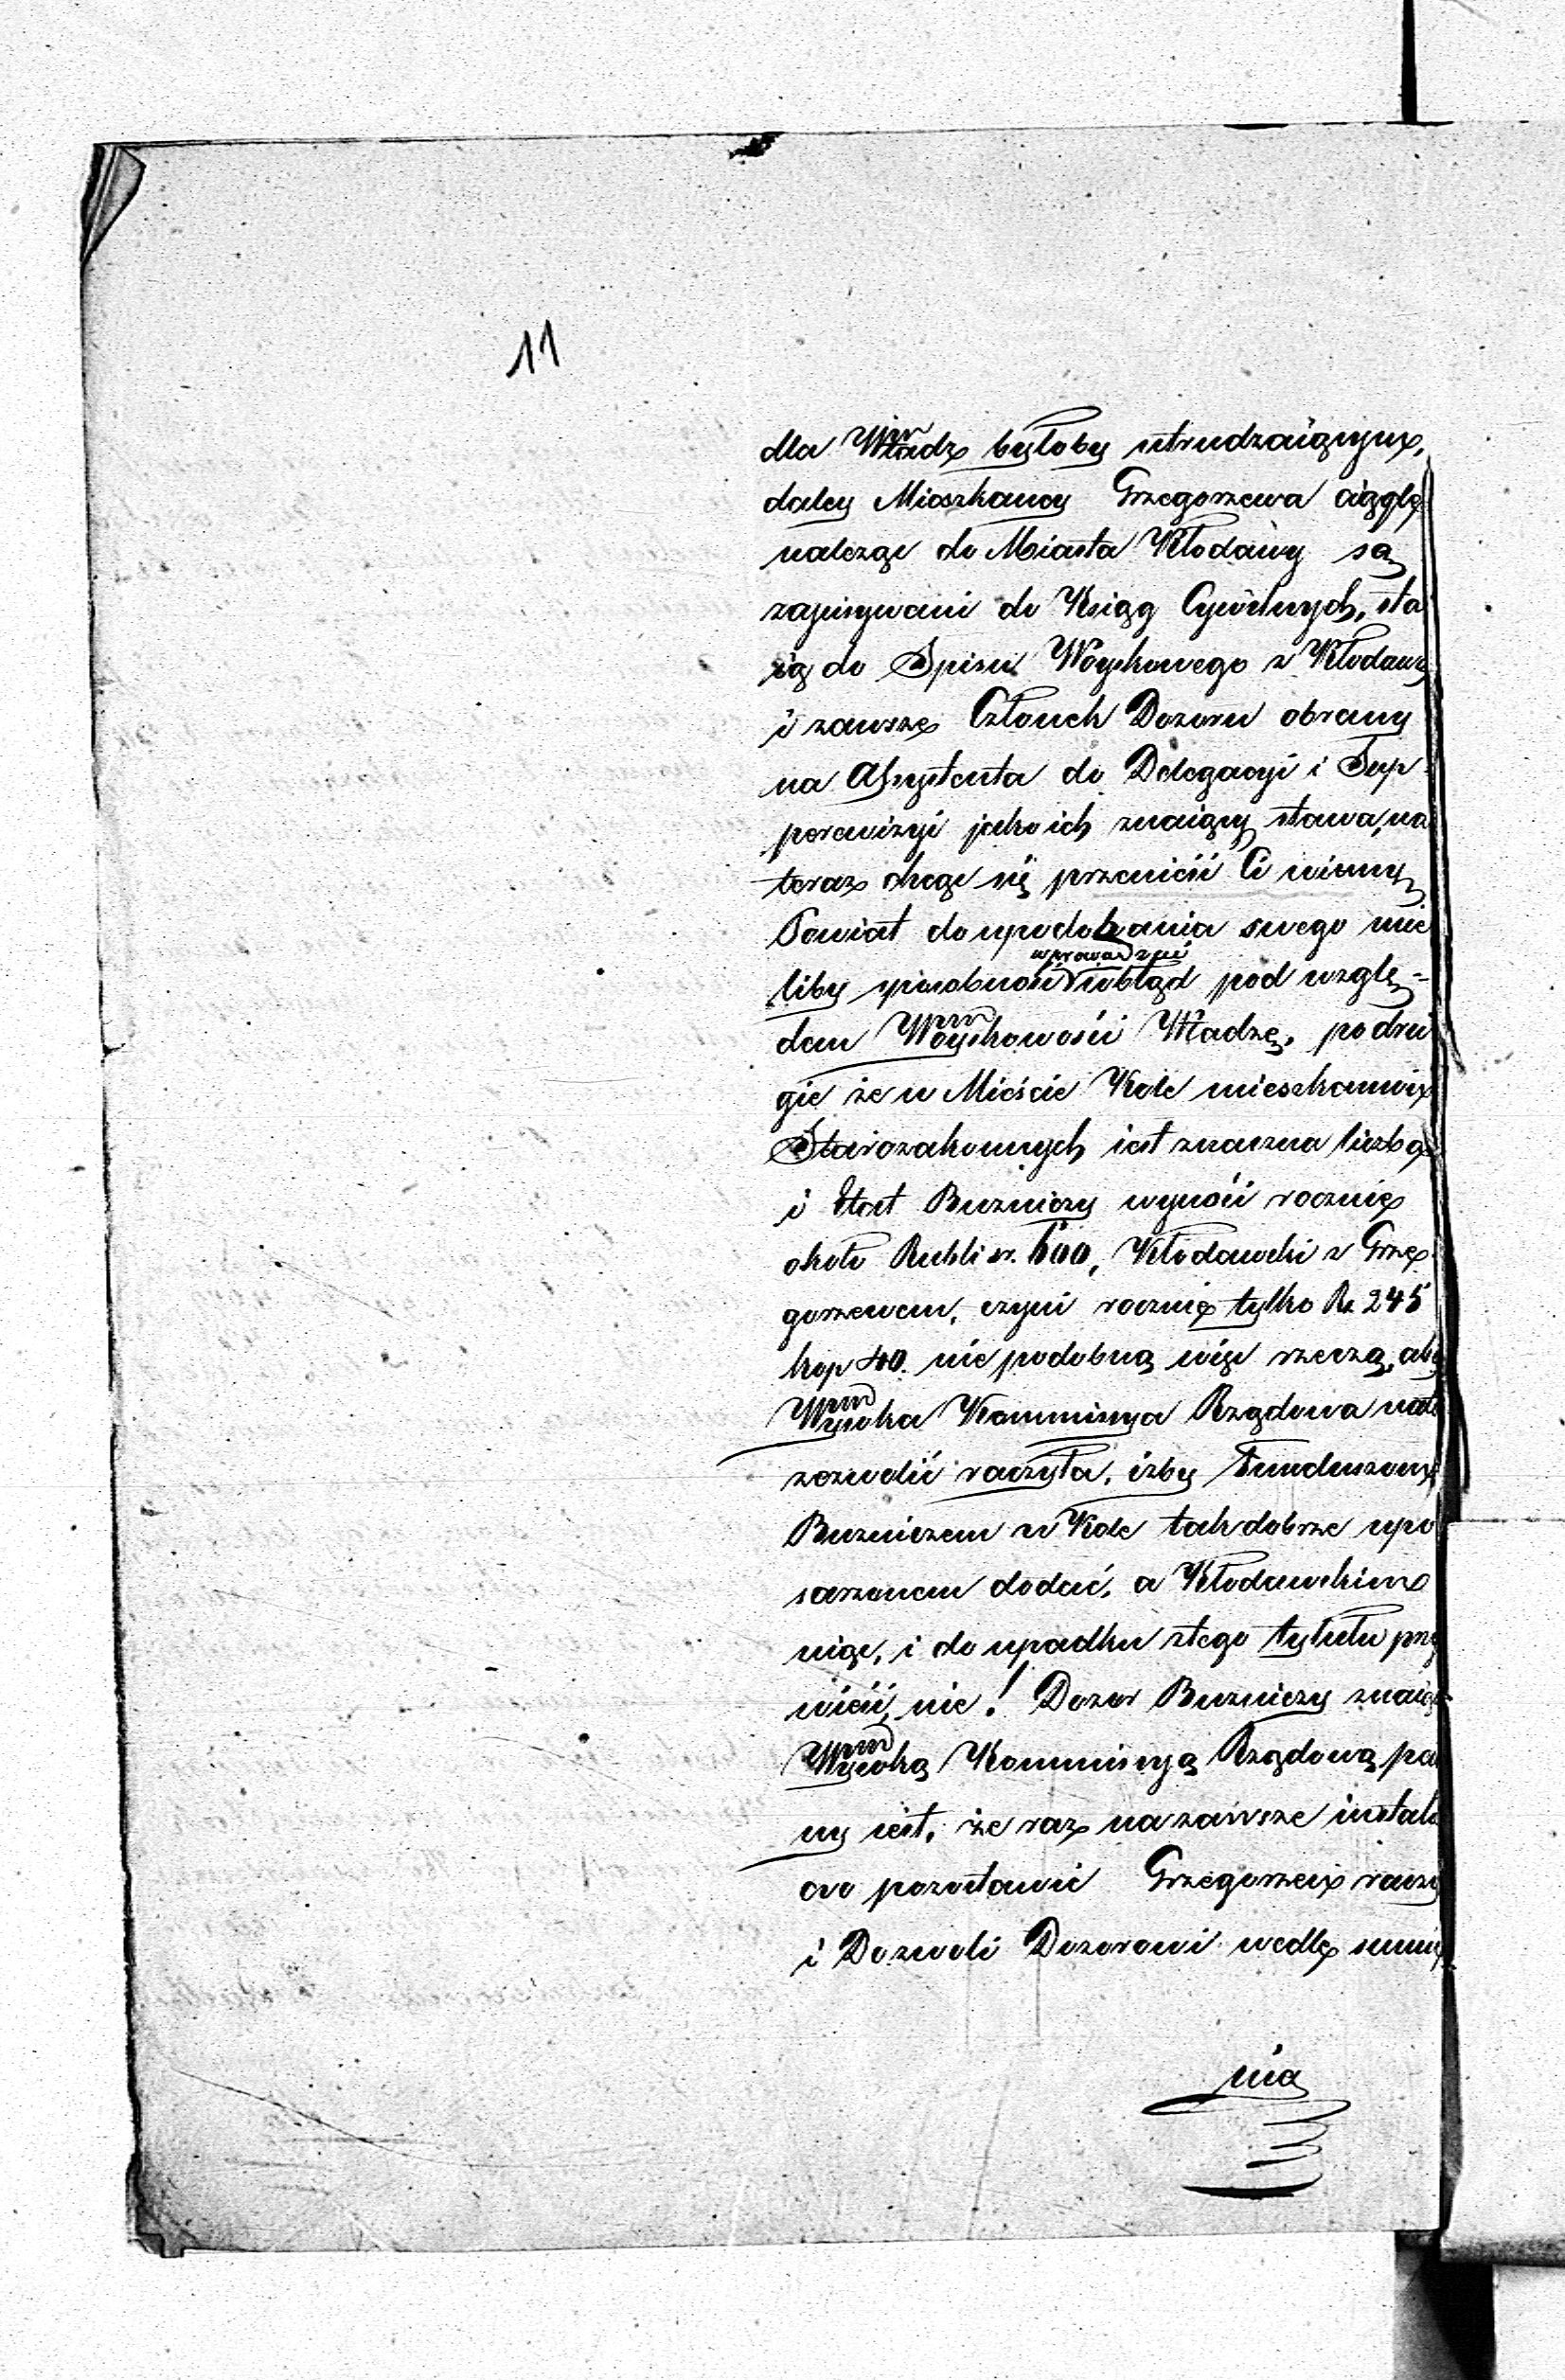 11
dla Władz byłoby utrudzaiącym,
daley Mieszkańcy Grzegorzewa ciągle
należąc do Miasta Kłodawy są
zapisywani do Ksiąg Cywilnych, sta
ią do Spisu Woyskowego w Kłodawie
i zawsze Członek Dozoru obrany
na Assystenta do Delegacyi i Sup
perewizyi jako ich znaiący stawa, na
teraz chcąc się przenieść w inny
Powiat do upodobania swego mie
liby sposobność wprowadzić w obłąd pod wzglę-
dem Woyskowości Władzę, po dru
gie że w Mieście Kole mieszkańcix
Starozakonnych iest znaczna liczba
i Etat Buzniczy wynosi rocznie
około Rubli sr. 600, Kłodawski z Grze
gorzewem, czyni rocznie tylko Rs. 245
kop 40. nie podobną więc rzeczą, aby
Wysoka Kommissya Rządowa na to
zezwolić raczyła, iżby Funduszowi
Buzniczem w Kole tak dobrze upo
sarzonem dodać, a Kłodawskim
niąc, i do upadku z tego tytułu przy
wieść, nie! Dozor Buzniczy znaiąc
Wysoką Kommissyą Rządową pe
ny iest, że raz na zawsze instala
cvo pozostawić Grzegorzew raczy
i Dozwoli Dozorowi wedle sumie
nia